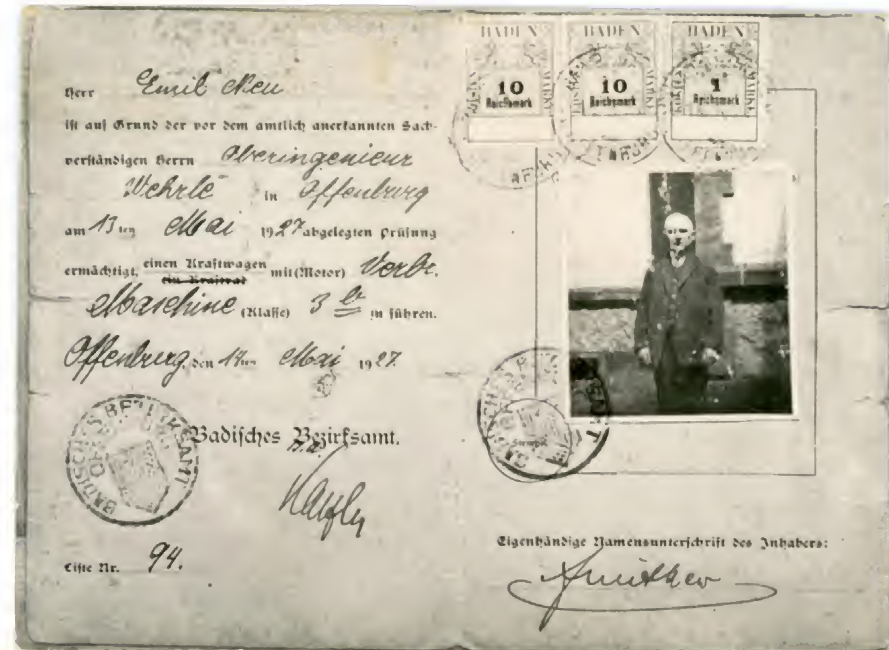 Herr Emil Neu
ist auf Grund der vor dem amtlich anerkannten Sach-
verständigen Herrn Oberingenieur
Wehrle in Offenburg
am 13ten Mai 1927 abgelegten Prüfung
ermächtigt, einen Kraftwagen mit (Motor) Verbr.
ein Kraftrad
Maschine (Klasse) 3 b zu führen.
Offenburg, den 17ten Mai 1927.
Badisches Bezirksamt.
BADISCHES BEZIRKSAMT
OFFENBURG
Liste Nr. 94.
BADEN BADEN BADEN
10 10 1
Reichsmark Reichsmark Reichsmark
BADISCHES
Stempel
Eigenhändige Namensunterschrift des Inhabers: